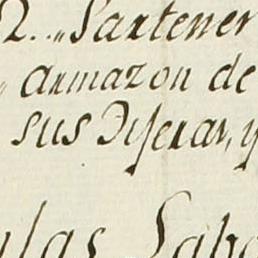 2. „ Sartener
armazon de
sus Disexar, y
las Sabo